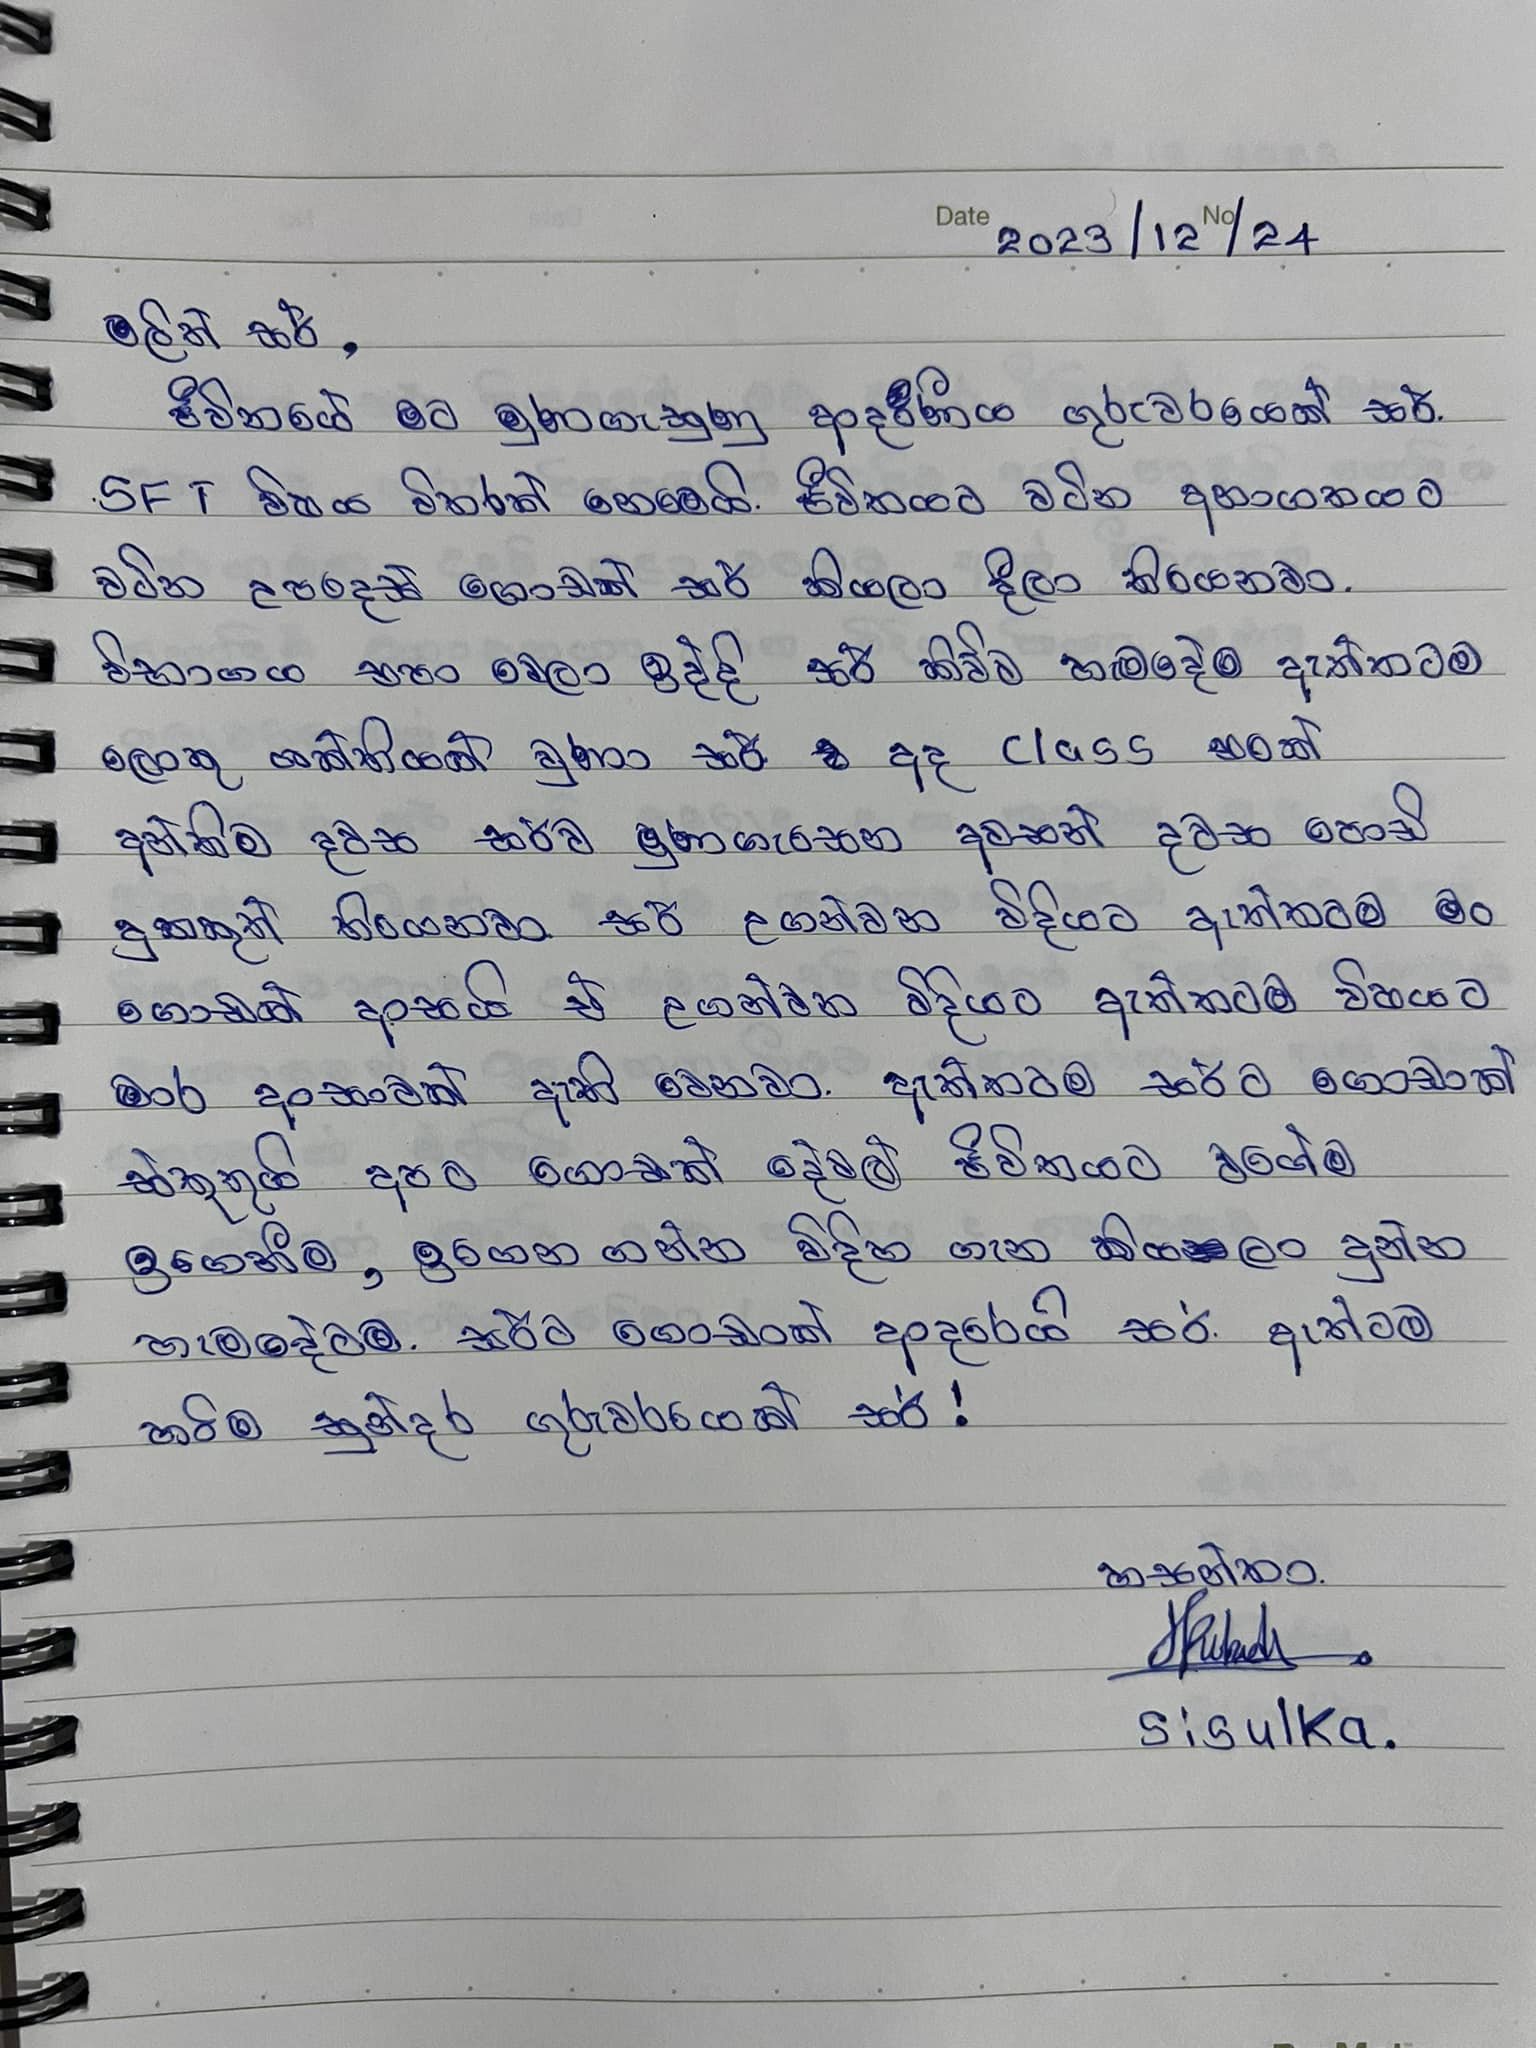 Date 2023/12/24 No
මලිත් සර්,
ජීවිතයේ මට මුණගැහුණු ආදරණීය ගුරුවරයෙක් සර්.
SFT විෂය විතරක් නෙමෙයි. ජීවිතයට වටින අනාගතයට
වටින උපදෙස් ගොඩක් සර් කියලා දීලා තියෙනවා.
විභාගය එපා වෙලා ඉද්දි සර් කිව්ව හැමදේම ඇත්තටම
ලොකු ශක්තියක් වුණා සර්. අද Class එකේ
අන්තිම දවස සර්ව මුණගැසෙන අවසන් දවස පොඩි
දුකකුත් තියෙනවා. සර් උගන්වන විදියට ඇත්තටම මං
ගොඩක් ආසයි ඒ උගන්වන විදියට ඇත්තටම විෂයට
මාර ආසාවක් ඇති වෙනවා. ඇත්තටම සර්ට ගොඩාක්
ස්තූතුයි අපට ගොඩක් දේවල් ජීවිතයට වගේම
ඉගෙනීම, ඉගෙන ගන්න විදිහ ගැන කියලා දුන්න
හැමදේටම. සර්ට ගොඩාක් ආදරෙයි සර්. ඇත්ටම
හරිම සුන්දර ගුරුවරයෙක් සර්!
හසන්තා.
sisulka.